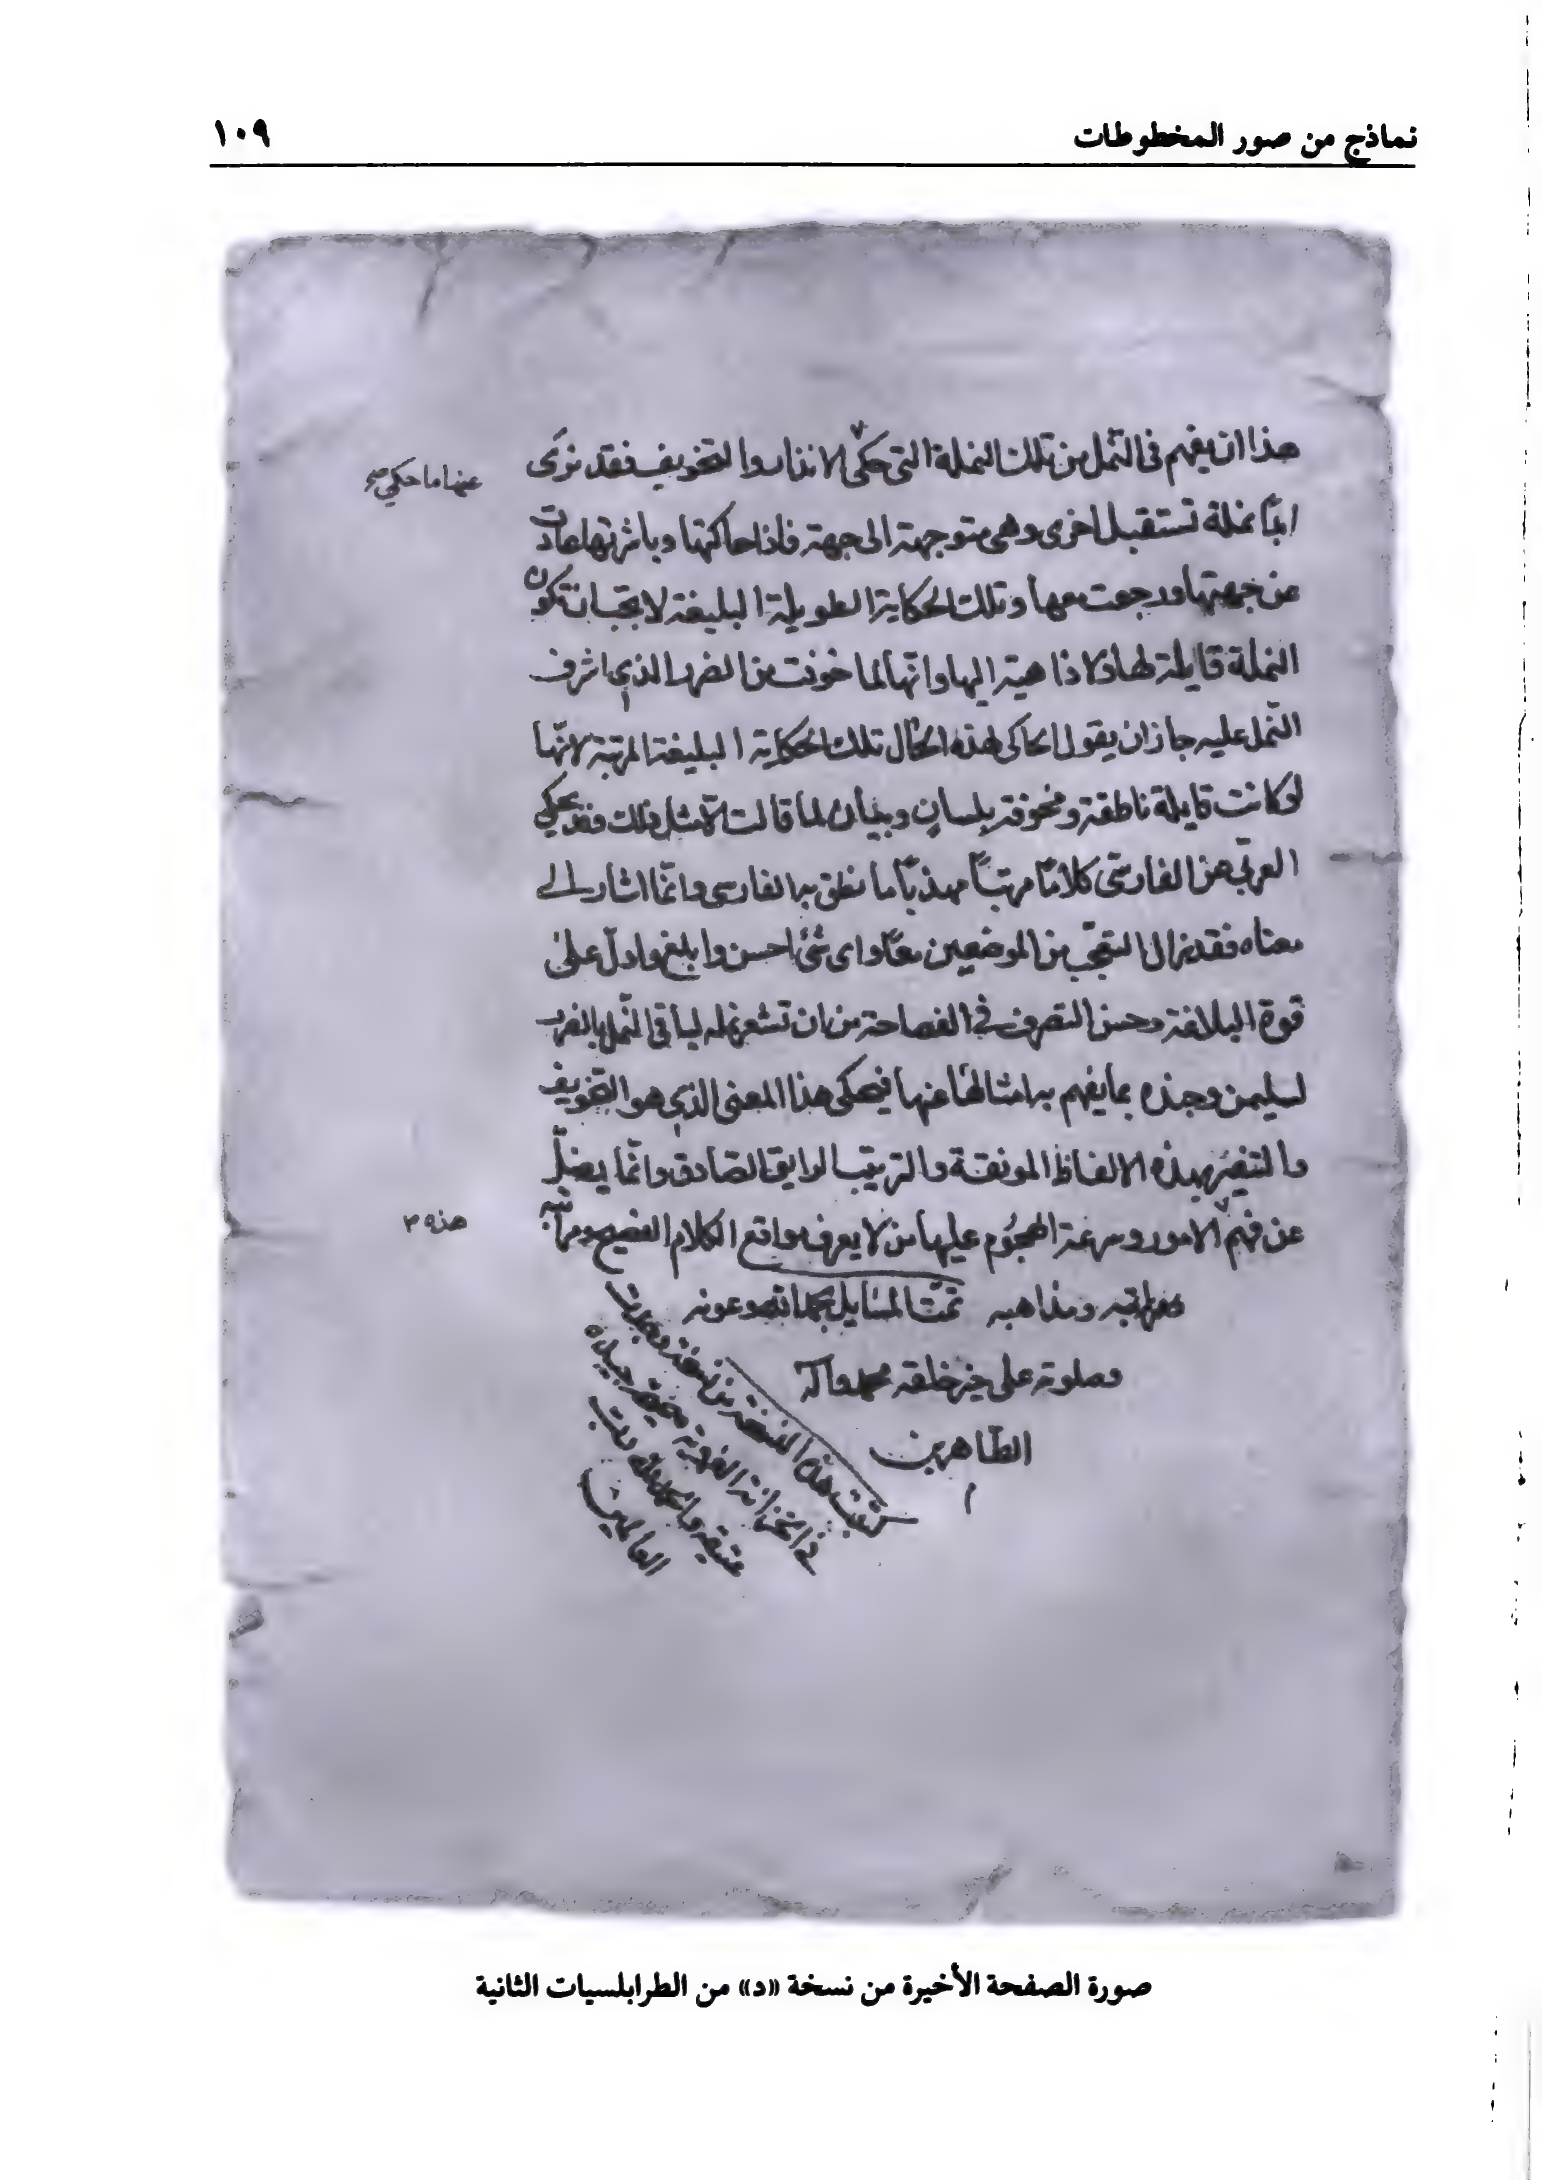 نماذج من صور المخطوطات
١٠٩
هذا ان يفهم فى النّمل من تلك النملة التى حكى الانذار والتخويف فقد نرى
عنها ما حكى
ابدًا نملة تستقبل اخرى وهى متوجهة الى جهة فاذا حاكتها وباشرتها عادت
عن جهتها ورجعت معها وتلك الحكاية الطويلة البليغة لا يجب ان تكون
النملة قايلة لها ولا ذاهبة اليها وانّها لما خوفت من الضرر الذى اشرف
النّمل عليه جاز ان يقول الحاكى لهذه الحال تلك الحكاية البليغة المرتبة لانّها
لو كانت قايلة ناطقة ومخوفة بلسان وبيان لما قالت الّا مثل ذلك وقد يحكى
العربىّ عن الفارسىّ كلامًا مرتبًا مهذبًا ما نطق به الفارسى وانّما اشار الى
معناه فقد زال التعجّب من الموضعين معًا واى شئ احسن وابلغ وادلّ على
قوة البلاغة وحسن التصرف فى الفصاحة من ان تشعر نملة لباقى النّمل بالضرر
لسليمن وجنده بما يفهم به امثالها عنها فيحكى هذا المعنى الذى هو التخويف
والتنفير بهذه الالفاظ المونقة والترتيب الرايق الصّادق وانّما يضلّ
عن فهم الامور وسرعة الهجوم عليها من لا يعرف مواقع الكلام الفصيح ومراتبه
هذه
ومراتبه ومذاهبه تمّت المسايل بحمد الله وعونه
وصلوته على خير خلقه محمد وآله
الطّاهرين
كتبت هذه النسخة من نسخة وجدت
فى الخزانة الغروية
عتيقه والحمد لله رب
العالمين
صورة الصفحة الأخيرة من نسخة «د» من الطرابلسيات الثانية